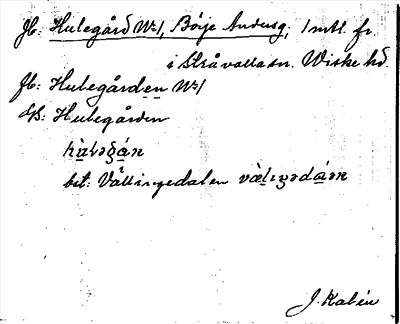 Jb: Hulegård No 1, Börje Andersg, 1 mtl. fr.
i Stråvalla sn. Wiske hd.
Jb: Hulegården No 1
Hulegården
bet: Vällingedalen
J. Kalén